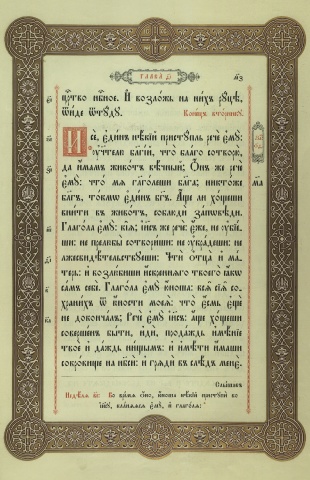 Глава
цⷭ҇тво нбⷭ҇ное. И҆ возло́жь на ни́хъ рꙋ́цѣ,
ѿи́де ѿтꙋ́дꙋ.
Коне́цъ вто́рникꙋ.
И҆ сѐ, є҆ди́нъ нѣ́кїй пристꙋ́пль речѐ є҆мꙋ̀:
ᲂу҆чт҃лю бл҃гі́й, что̀ бла́го сотворю̀,
да и҆́мамъ живо́тъ вѣ́чный; Ѻ҆́нъ же речѐ
є҆мꙋ̀: что́ мѧ гл҃го́леши бл҃га; никто́же
бл҃гъ, то́кмѡ є҆ди́нъ бг҃ъ. А҆́ще ли хо́щеши
вни́ти въ живо́тъ, соблюдѝ за́пѡвѣди.
Глаго́ла є҆мꙋ̀: кі́ѧ; і҆и҃съ же речѐ: є҆́же, не ᲂу҆бїе́-
ши: не прелюбы̀ сотвори́ши: не ᲂу҆кра́деши: не
лжесвидѣ́тельствꙋеши: Чтѝ ѻ҆тца̀ и҆ ма́-
терь: и҆ возлю́биши и҆́скреннѧго твоего̀ ꙗ҆́кѡ
са́мъ себѐ. Глаго́ла є҆мꙋ̀ ю҆́ноша: всѧ̑ сїѧ̑ со-
храни́хъ ѿ ю҆́ности моеѧ̀: что̀ є҆́смь є҆щѐ
не доконча́лъ; Речѐ є҆мꙋ̀ і҆и҃съ: а҆́ще хо́щеши
соверше́нъ бы́ти, и҆дѝ, прода́ждь и҆мѣ́нїе
твоѐ и҆ да́ждь ни́щымъ: и҆ и҆мѣ́ти и҆́маши
сокро́вище на нб҃сѝ: и҆ грѧдѝ въ слѣ́дъ менє̀.
Слы́шавъ
Недѣ́лѧ Во вре́мѧ ѻ҆́но, ю҆́ноша нѣ́кїй пристꙋпѝ ко
і҆и҃сꙋ, кла́нѧѧсѧ є҆мꙋ̀, и҆ глаго́лѧ: